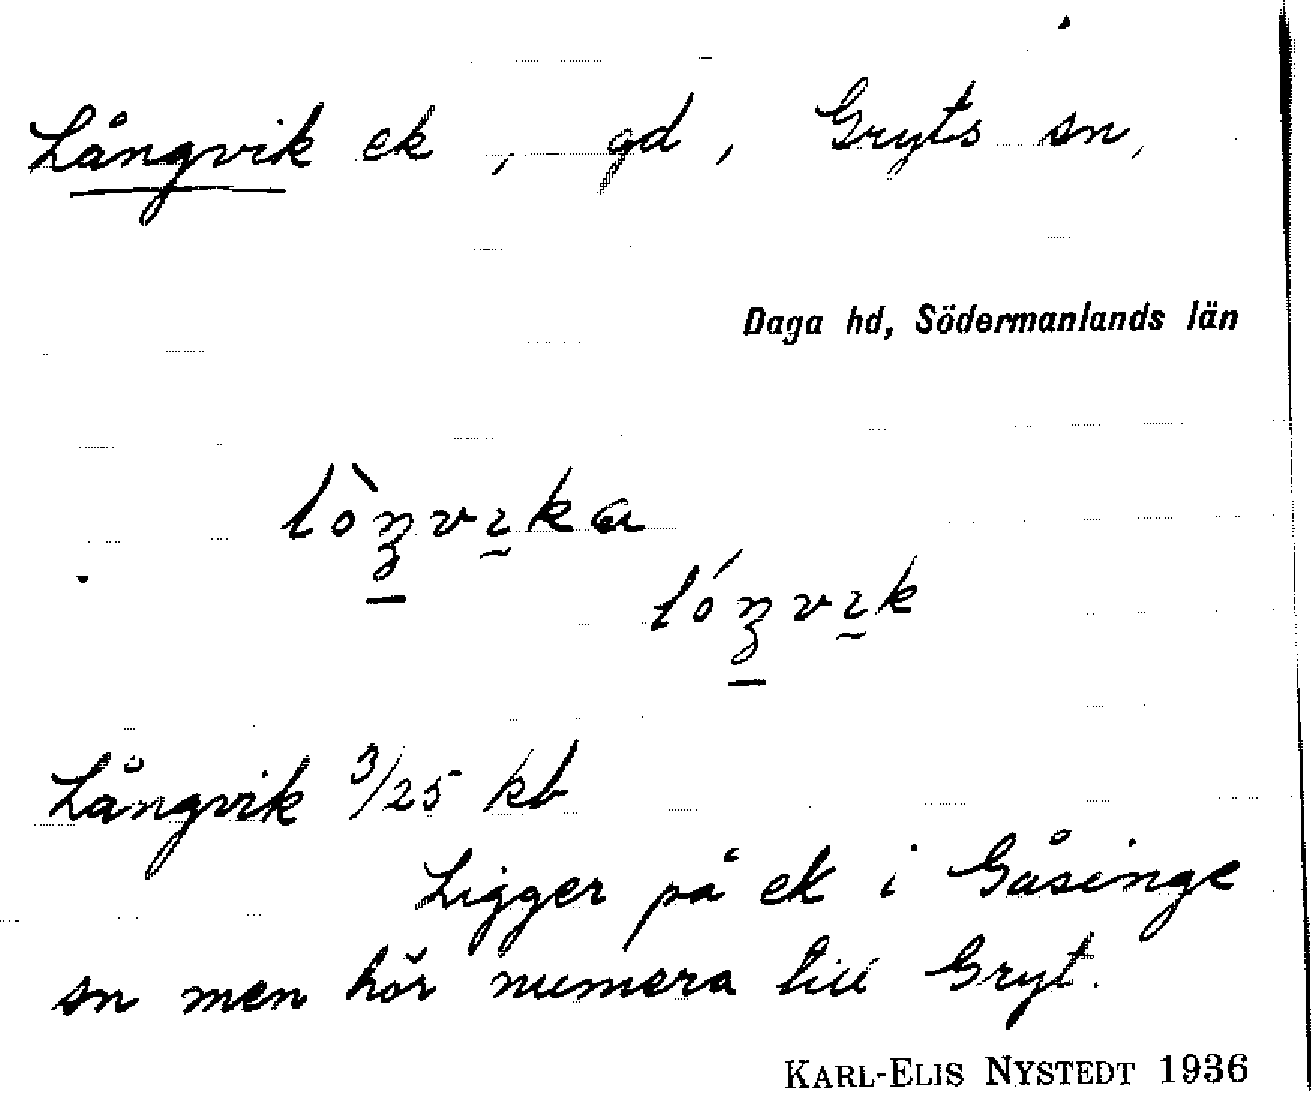 Långvik ek, gd, Gryts sn,
Daga hd, Södermanlands län
Långvik 3/25 kb
Ligger på ek i Gåsinge
sn men hör numera till Gryt.
KARL-ELIS NYSTEDT 1936